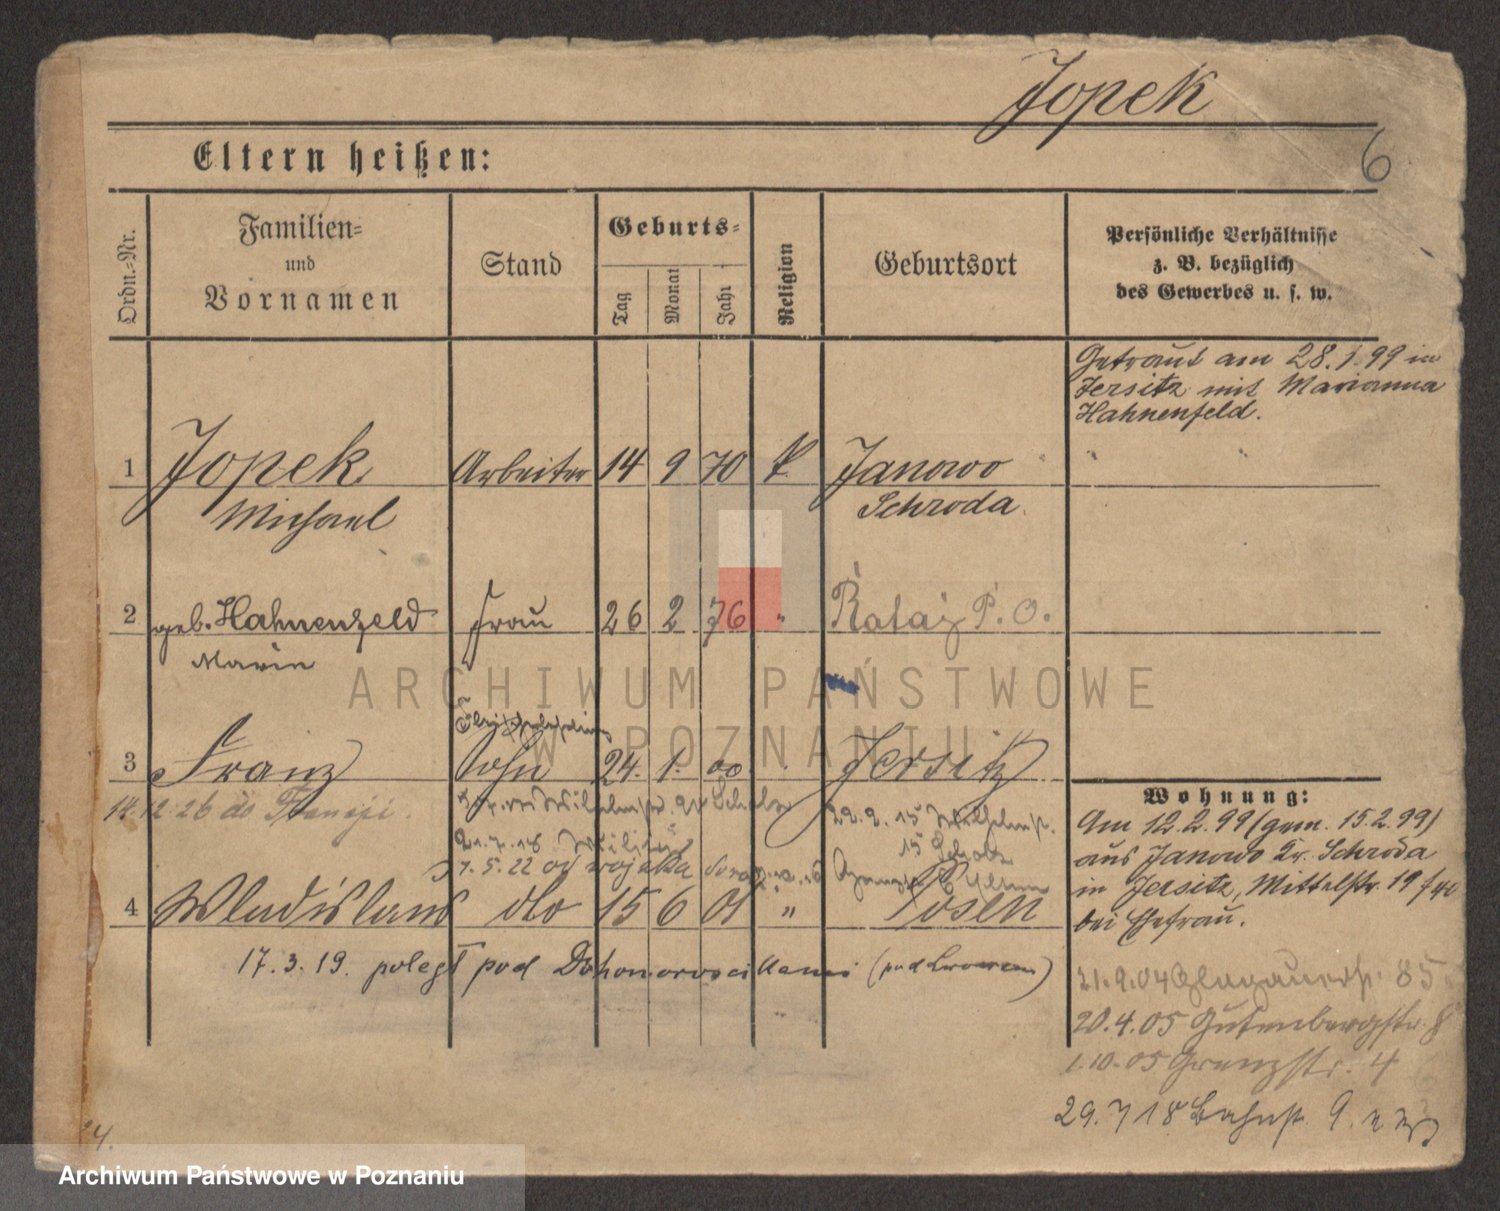 Jopek
6
Eltern heißen:
Ordn.-Nr.
Familien-
und
Vornamen
Stand
Geburts-
Tag
Monat
Jahr
Religion
Geburtsort
Persönliche Verhältnisse
z. B. bezüglich
des Gewerbes u. s. w.
Getraut am 28.1.99 in
Jersitz mit Marianna
Hahnenfeld.
1 Jopek Arbeiter 14 9 70 K Janowo
Michael Schroda
2 geb. Hahnenfeld Frau 26 2 76 " Rataj P. O.
Marie
3 Franz Sohn 24. 1. 00 Jersitz
14.12.26 do
21.7.18
7.5.22 od wojska
4 Wladislaus dto 15 6 01 " Posen
17.3.19. poległ pod (pod Lwowem)
Wohnung:
Am 12.2.99 (gem. 15.2.99)
aus Janowo Kr. Schroda
in Jersitz, Mittelstr. 19
bei Ehefrau.
21.9.04 Glogauerstr. 85
20.4.05 Gutenbergstr. 8
1.10.05 Grenzstr. 4
29.7 18 Bahnst. 9.
ARCHIWUM PAŃSTWOWE
W POZNANIU
Archiwum Państwowe w Poznaniu